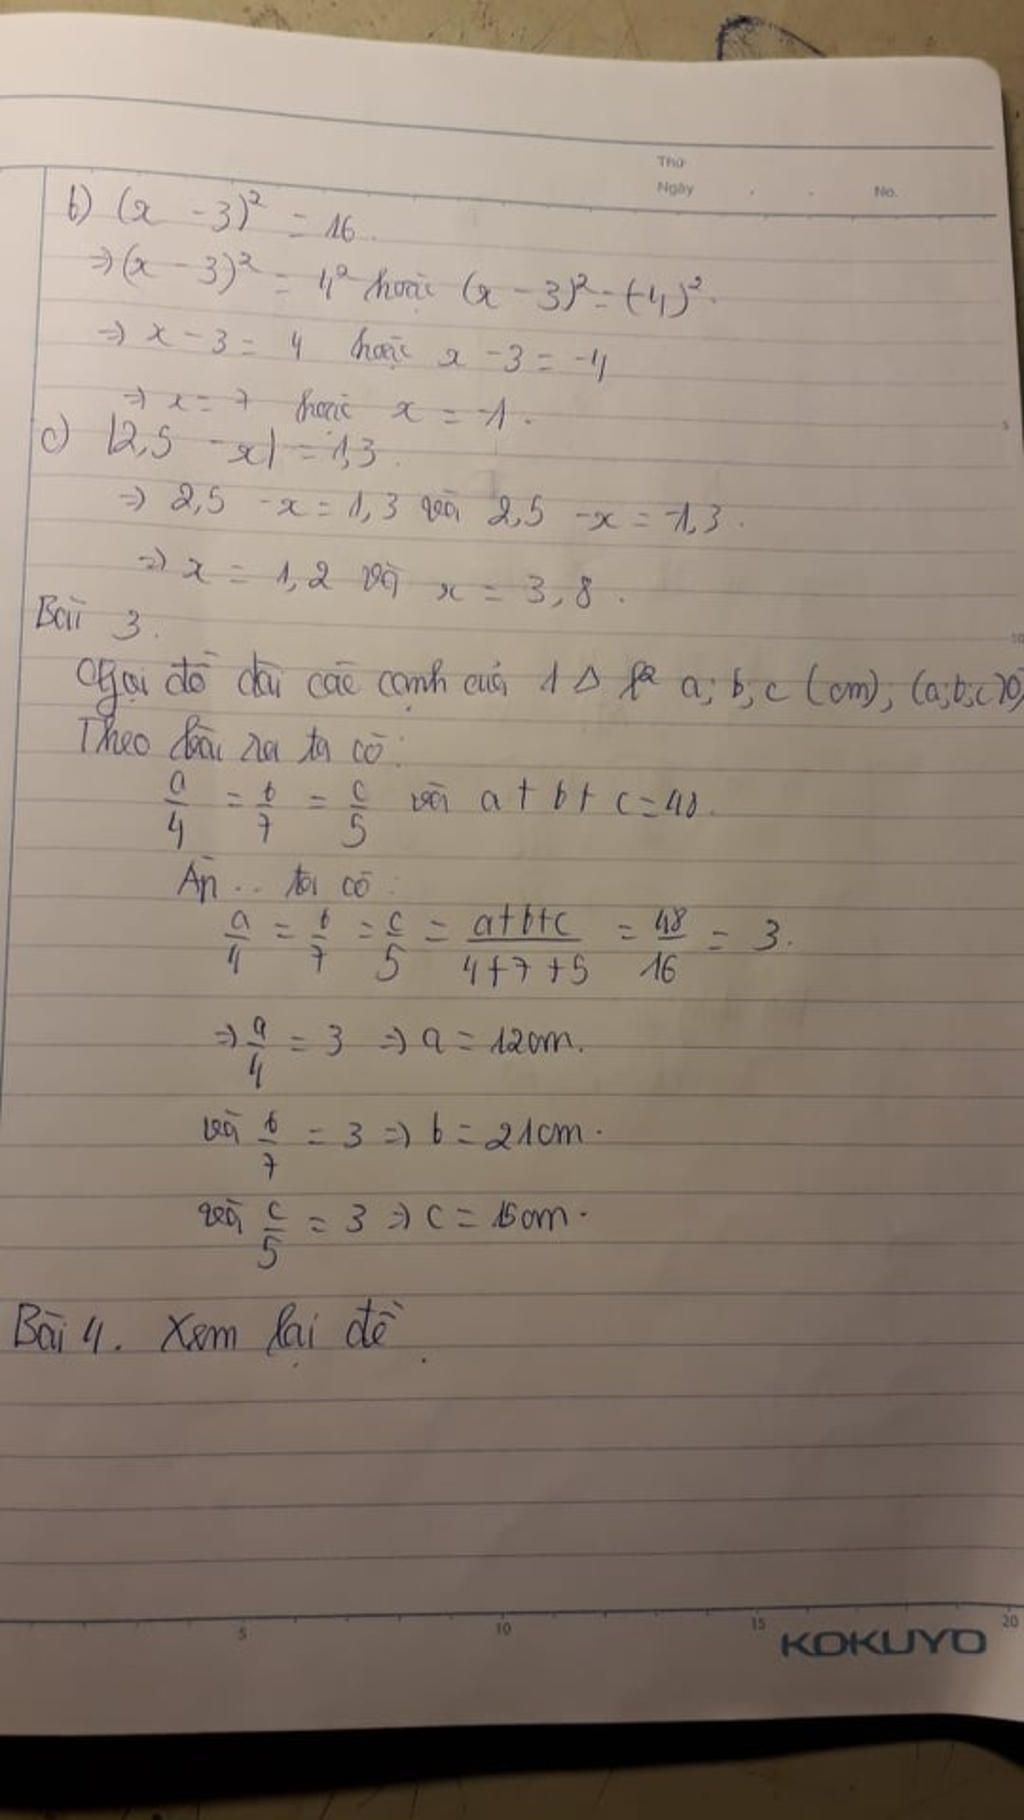 Thứ
Ngày . . No.
b) (x - 3)² = 16.
⇒ (x - 3)² = 4² hoặc (x - 3)² = (-4)².
⇒ x - 3 = 4 hoặc x - 3 = -4
⇒ x = 7 hoặc x = -1.
c) |2,5 - x| = 1,3.
⇒ 2,5 - x = 1,3 và 2,5 - x = -1,3.
⇒ x = 1,2 và x = 3,8.
Bài 3.
Gọi độ dài các cạnh của 1 Δ là a; b; c (cm), (a;b;c>0)
Theo bài ra ta có:
a/4 = b/7 = c/5 và a + b + c = 48.
Áp .. ta có:
a/4 = b/7 = c/5 = a+b+c/4+7+5 = 48/16 = 3.
⇒ a/4 = 3 ⇒ a = 12cm.
và b/7 = 3 ⇒ b = 21cm.
và c/5 = 3 ⇒ c = 15cm.
Bài 4. Xem lại đề.
5 10 15 20
KOKUYO